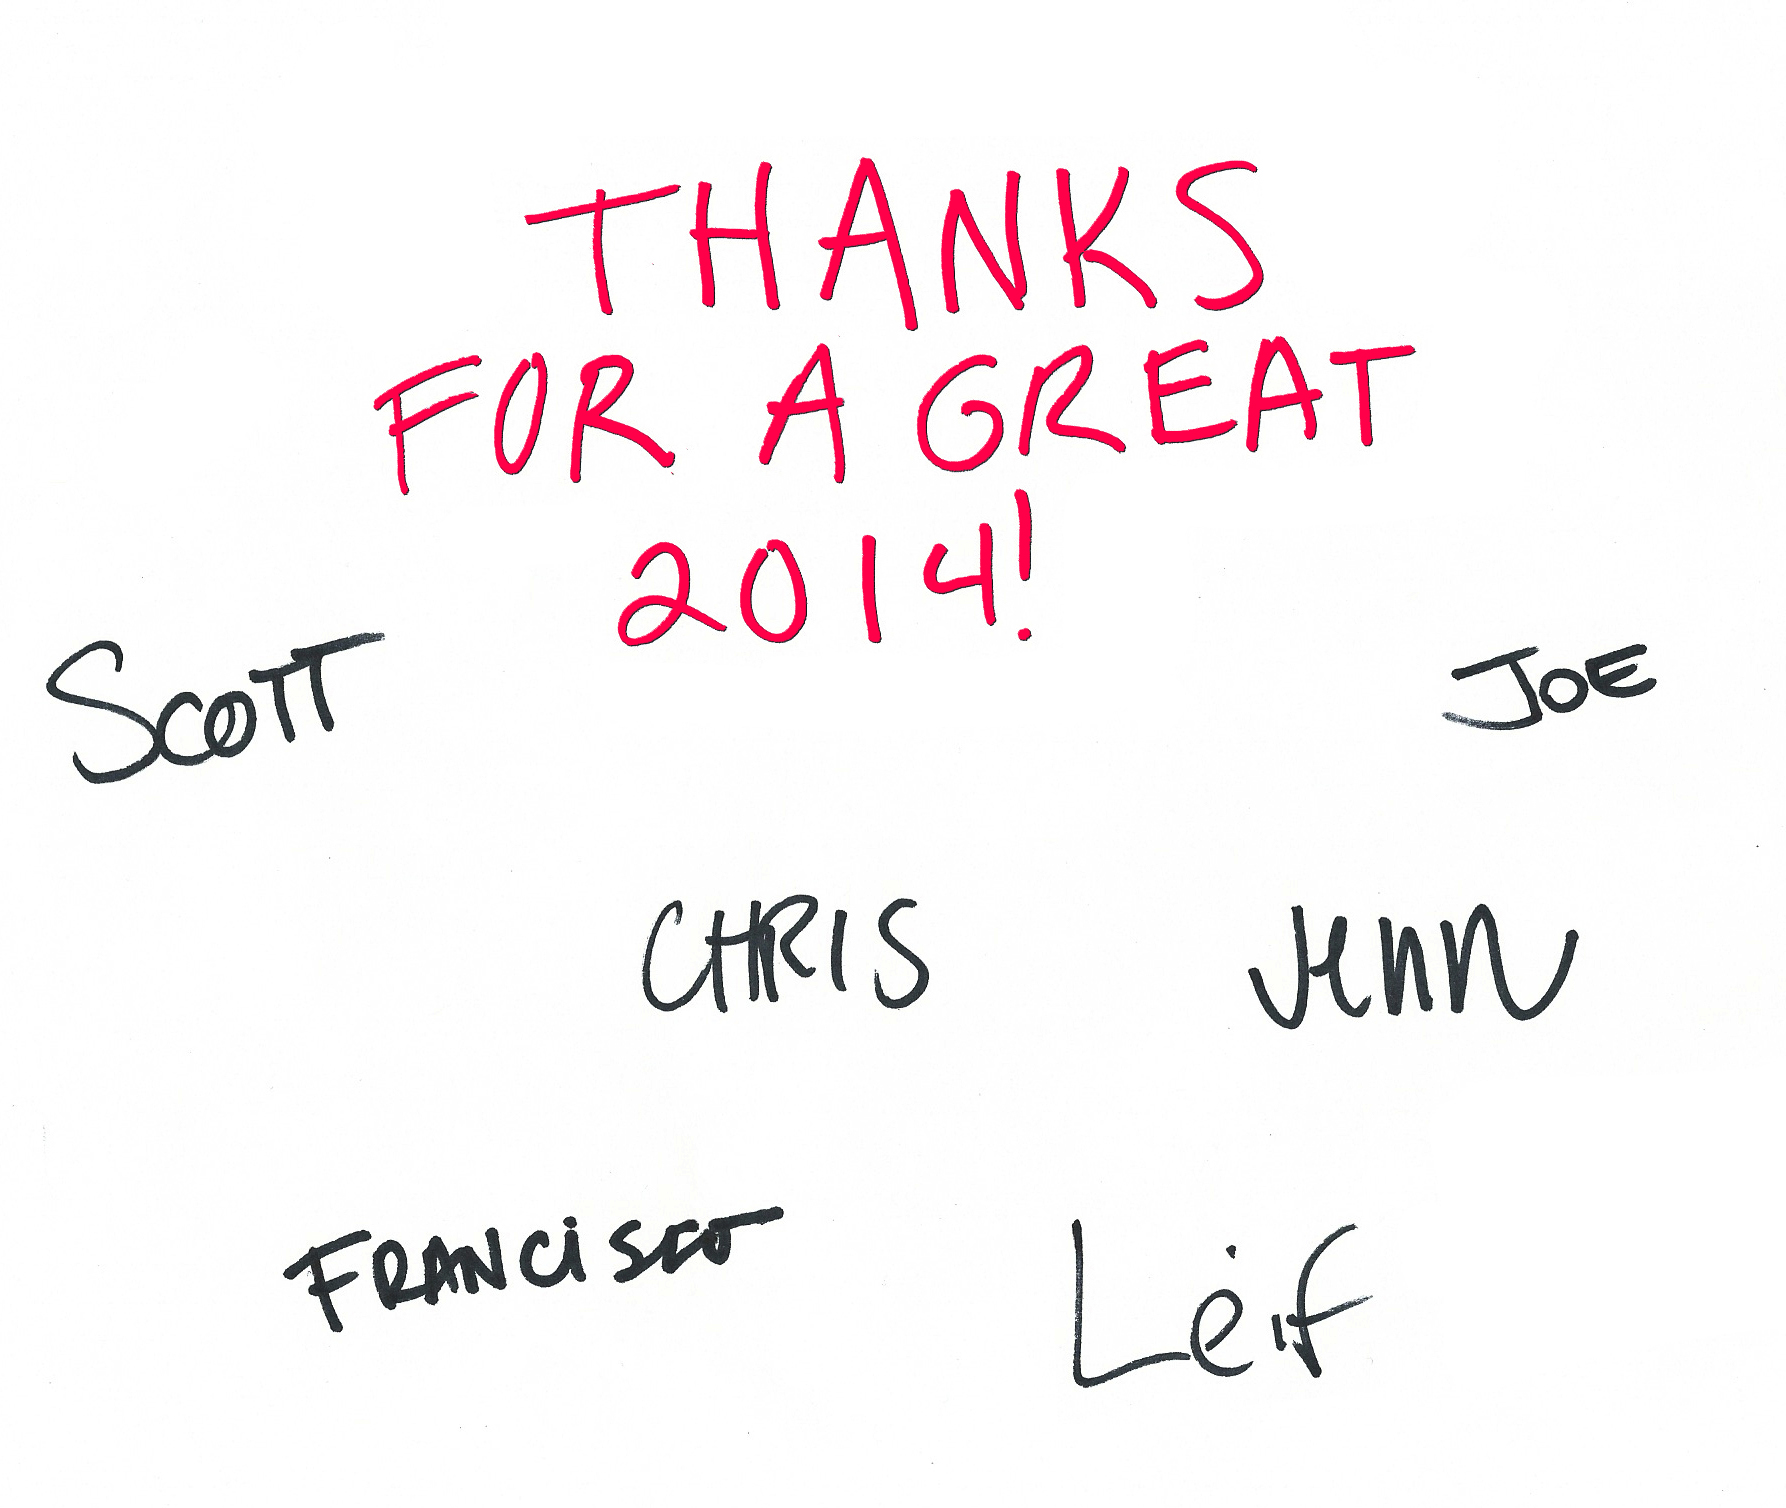 THANKS
FOR A GREAT
2014!
SCOTT
JOE
CHRIS
Jenn
FRANCiSCO
Leif